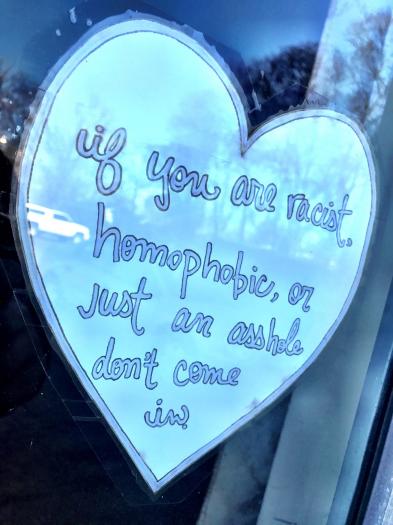 if you are racist,
homophobic, or
just an asshole
don't come
in.